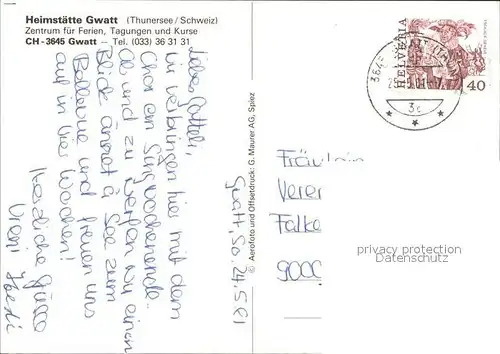 Heimstätte Gwatt (Thunersee/Schweiz)
Zentrum für Ferien, Tagungen und Kurse
CH - 3645 Gwatt – Tel. (033) 36 31 31
HELVETIA
40
3c
Gwatt, So. 24.5.81
wir verbringen hier mit dem
Chor ein Singwochenende.
Ab und zu werfen wir einen
Blick änet à See zum
Bellevue und freuen uns
auf in vier Wochen!
Herzliche Grüsse
Vreni
© Aerofoto und Offsetdruck: G. Maurer AG, Spiez
Fräulein
Veren
Falke
9000
privacy protection
DATENSCHUTZ